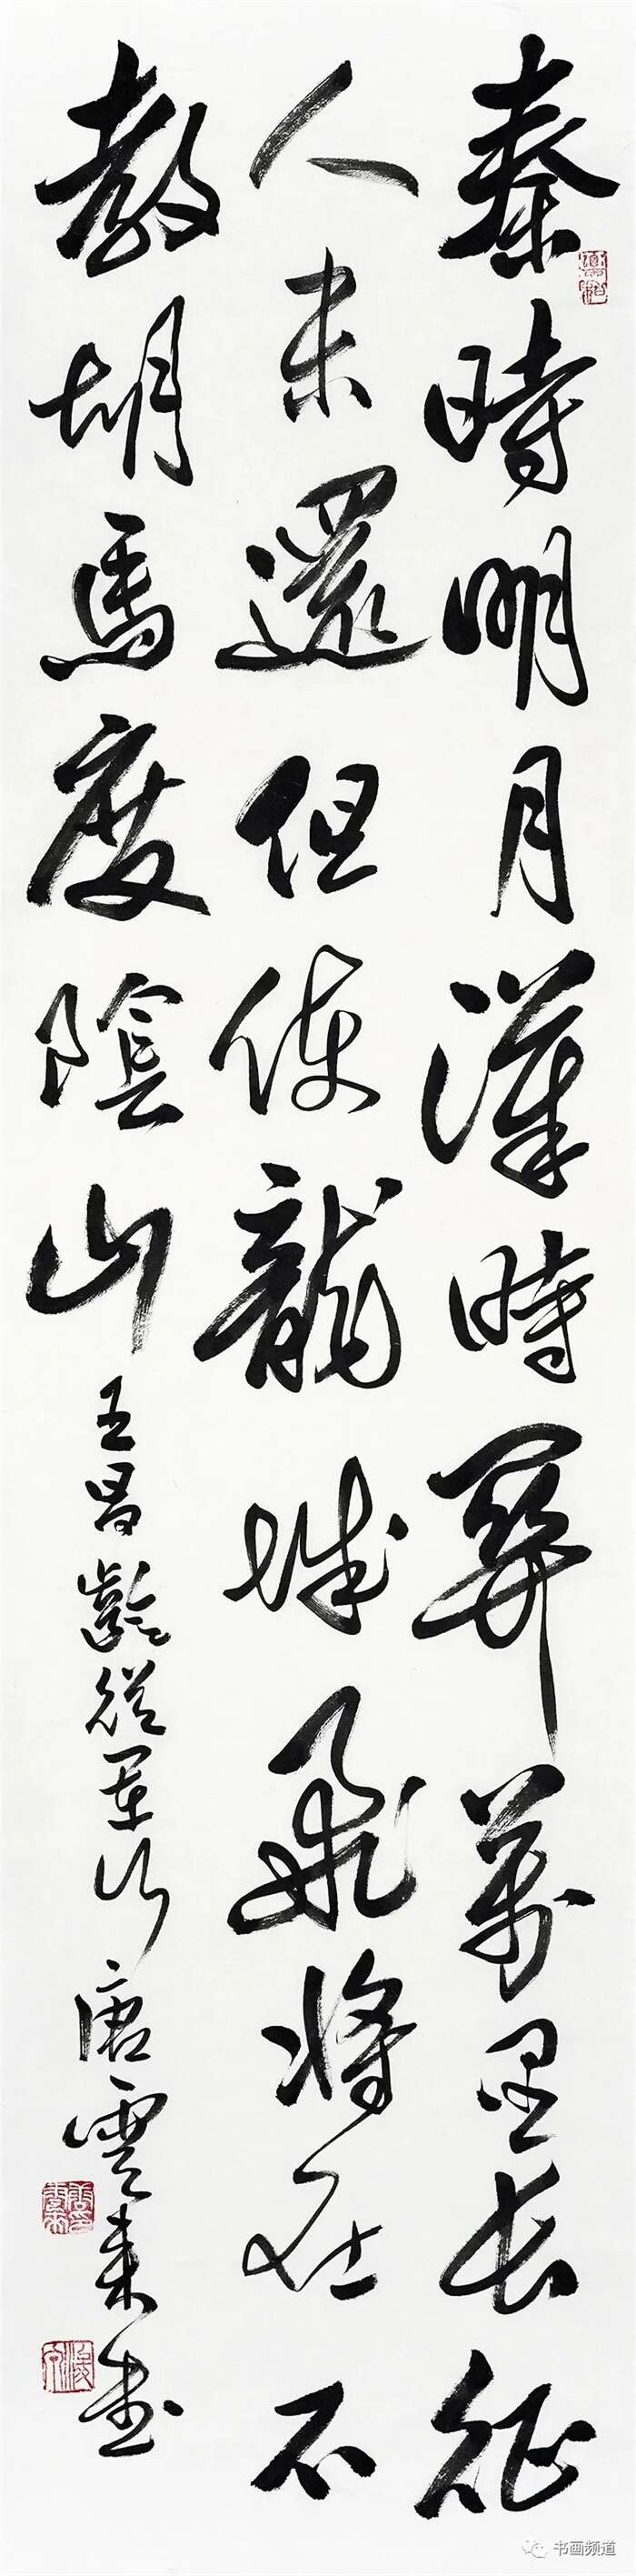 秦時明月漢時關萬里長征
人未還但使龍城飛將在不
教胡馬度陰山
王昌齡從軍行 唐雲來書
书画频道